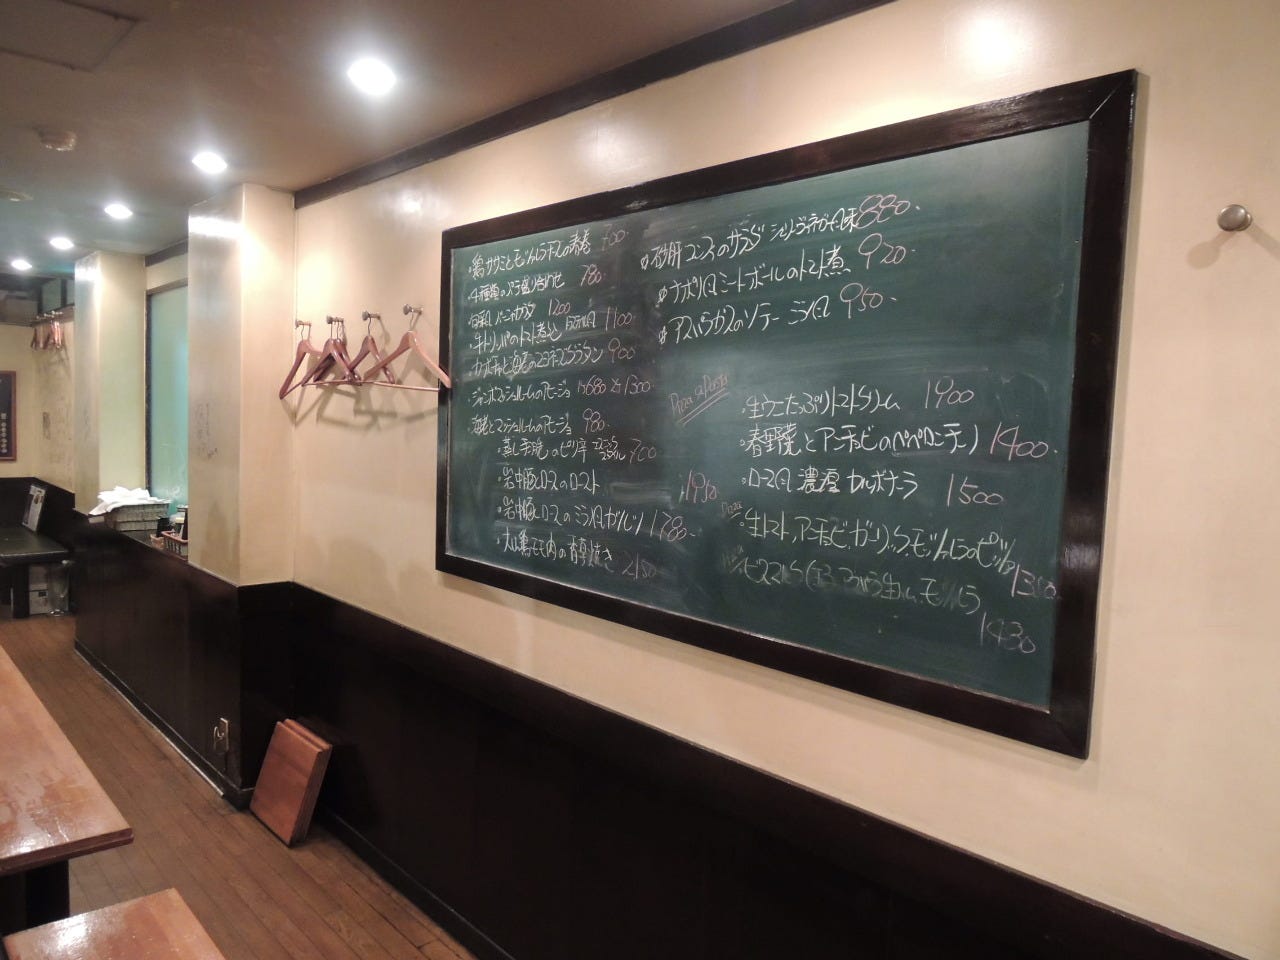 ・鶏ササミとモッツァレラチーズの春巻 700
・4種類の 盛り合わせ 780
バーニャカウダ 1200
・牛トリッパのトマト煮込 1100
カボチャと 900
・ジャンボマッシュルームのアヒージョ 680 1300
海老とマッシュルームのアヒージョ 980
・蒸し のピリ辛 700
・岩中豚ロースのロースト 1980
・岩中豚ロースのミラノ風カツレツ 1780
・大山鶏モモ肉の香草焼き 2180
砂肝コンフィのサラダ シェリーヴィネガー風味 880
ナポリ風ミートボールのトマト煮 920
アスパラガスのソテー ミラノ風 950
Pizza & Pasta
・生ウニたっぷりトマトクリーム 1900
・春野菜とアンチョビのペペロンチーノ 1400
・ローマ風 濃厚カルボナーラ 1500
Pizza ・生トマト、アンチョビ、ガーリック、モッツァレラのピッツァ 1380
ビスマルク 生ハム、モッツァレラ
1430